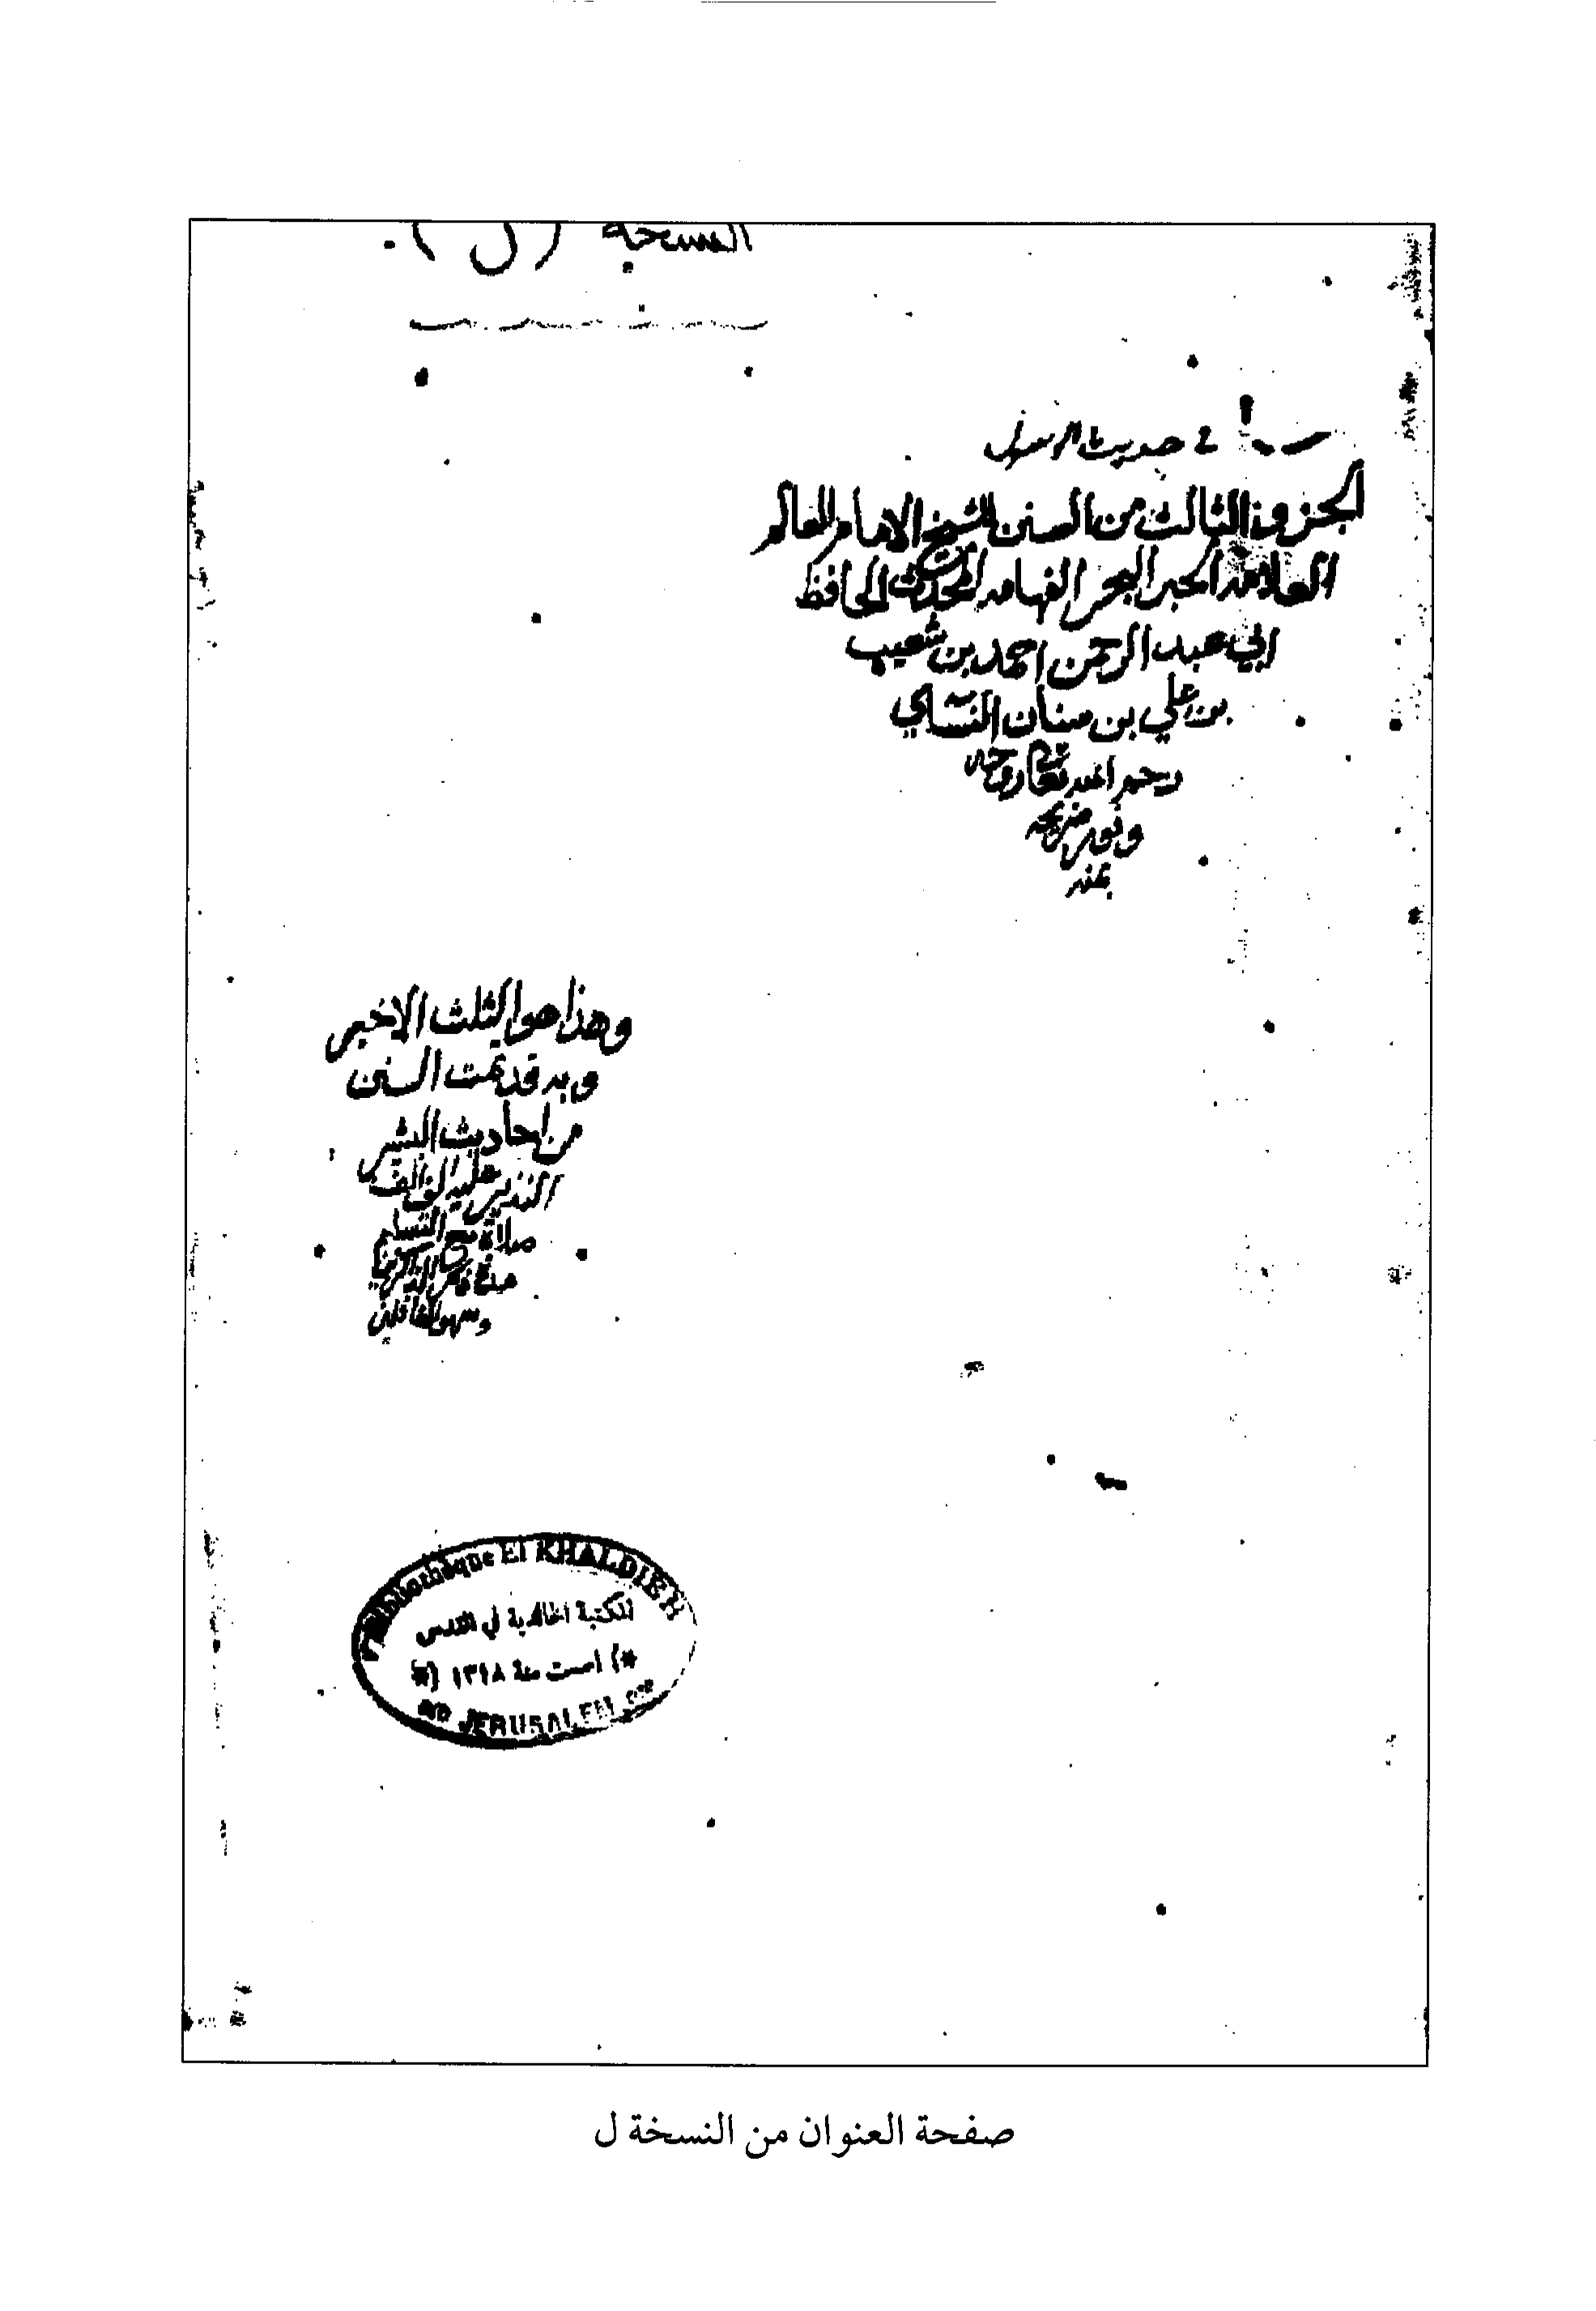 النسخة (ل).
في حديث الرسول
الجزو الثالث من السنن للشيخ الامام العالم
العلامه الحبر البحر الفهامه المحدث الحافظ
ابي عبد الرحمن احمد بن شعيب
بن علي بن سنان النسائي
رحمه الله تعالى روحه
ونور ضريحه
بمنه
وهذا هو الثلث الاخير
وبه قد تمت السنن
من احاديث البشير
النذير عليه الف الف
صلاة مع التسليم
وسهو الغافلين
Bibliothèque El KHALDIEH
المكتبة الخالدية في القدس
*) اسست سنة ١٣١٨ (*
JERUSALEM
صفحة العنوان من النسخة ل